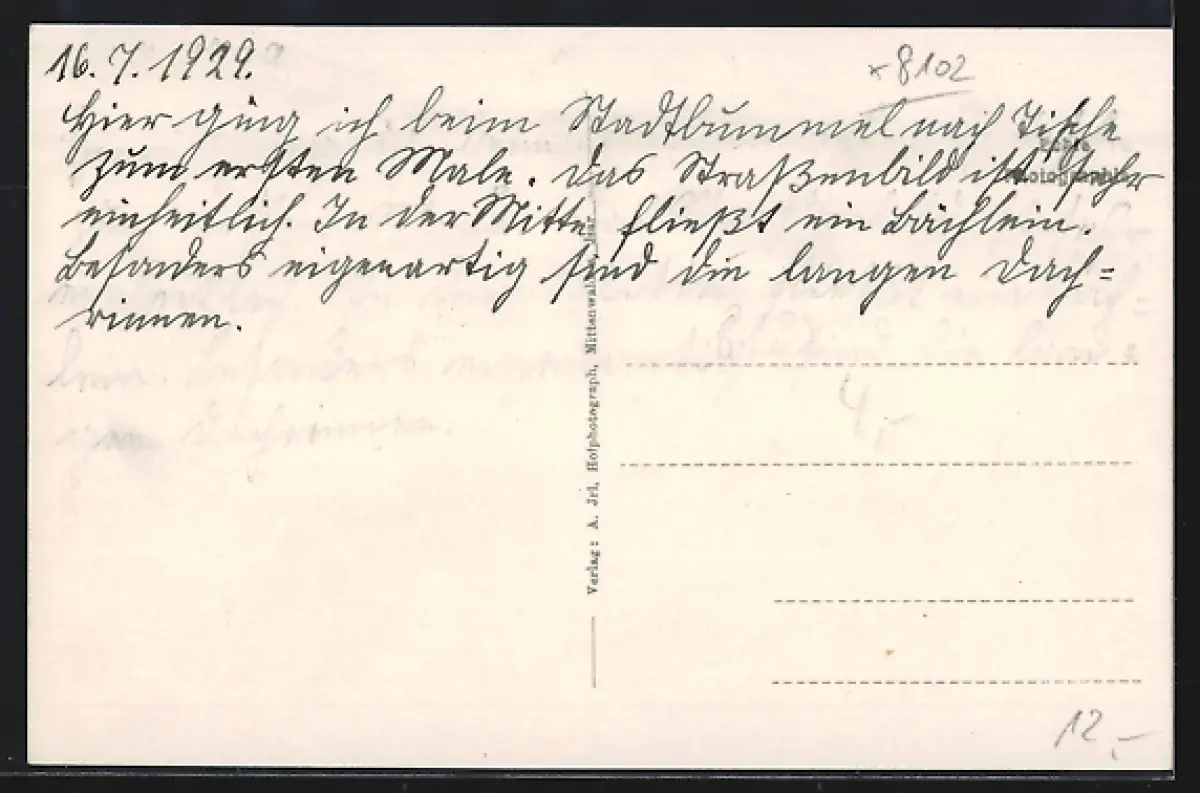 16.7.1929.
* 8102
Hier ging ich beim Stadtbummel nach Tische
zum ersten Male. Das Straßenbild ist sehr
einheitlich. In der Mitte fließt ein Bächlein.
Besonders eigenartig sind die langen Dach=
rinnen.
Echte
Photographie
Verlag: A. Jrl, Hofphotograph, Mittenwald
4,-
12,-